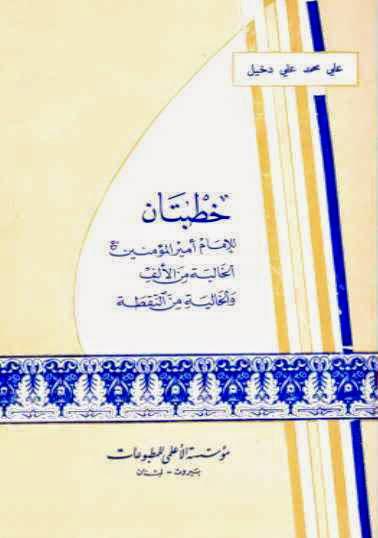 علي محمد علي دخيل
خُطْبَتَان
للإمام أمير المؤمنين ع
الخالية مِنَ الألف
وَالخالية مِنَ النقطة
مؤسسة الأعلمي للمطبوعات
بيروت - لبنان